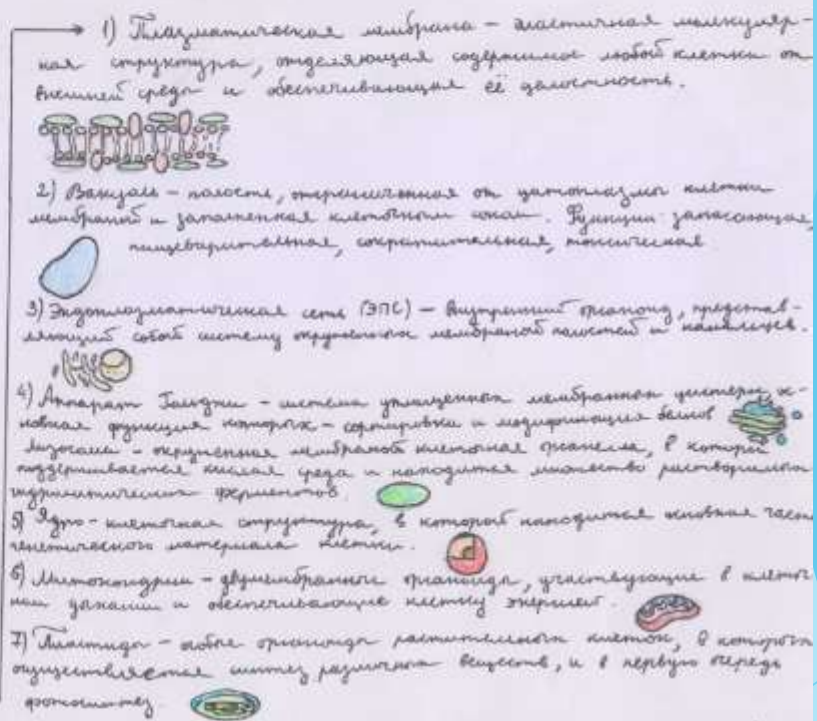 1) Плазматическая мембрана – эластичная молекуляр-
ная структура, отделяющая содержимое любой клетки от
внешней среды и обеспечивающая её целостность.
2) Вакуоль – полость, отграниченная от цитоплазмы клетки
мембраной и заполненная клеточным соком. Функции: запасающая,
пищеварительная, сократительная, токсическая
3) Эндоплазматическая сеть (ЭПС) – внутренний органоид, представ-
ляющий собой систему окруженных мембраной полостей и канальцев.
4) Аппарат Гольджи – система уплощенных мембранных цистерн, ос-
новная функция которых – сортировка и модификация белков
Лизосома – окруженная мембраной клеточная органелла, в которой
поддерживается кислая среда и находится множество растворимых
гидролитических ферментов.
5) Ядро – клеточная структура, в которой находится основная часть
генетического материала клетки.
6) Митохондрии – двумембранные органоиды, участвующие в клеточ
ном дыхании и обеспечивающие клетку энергией.
7) Пластиды – особые органоиды растительных клеток, в которых
осуществляется синтез различных веществ, и в первую очередь
фотосинтез